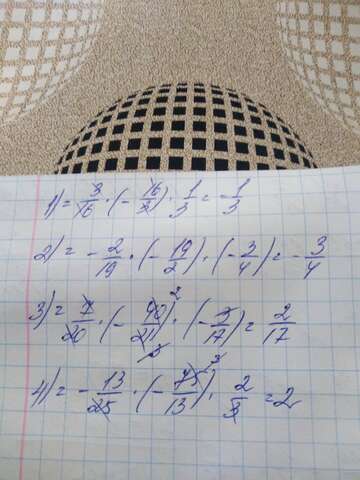 1) = 3/16 · (- 16/3) · 1/3 = - 1/3
2) = - 2/19 · (- 19/2) · (- 3/4) = - 3/4
3) = 7/20 · (- 40/21)² · (- 3/17) = 2/17
4) = - 13/25 · (- 75/13)³ · 2/3 = 2